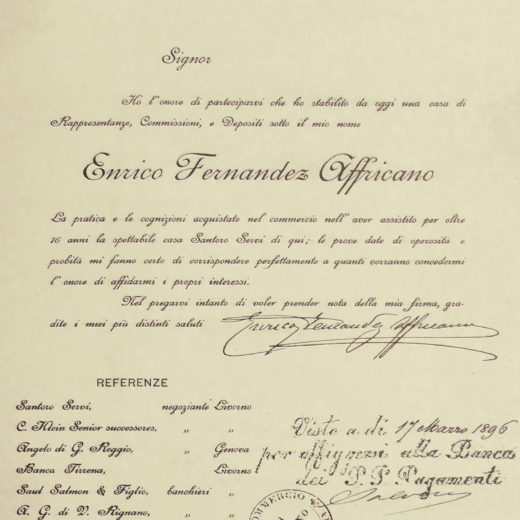 Signor
Ho l'onore di parteciparvi che ho stabilito da oggi una casa di
Rappresentanze, Commissioni, e Depositi sotto il mio nome
Enrico Fernandez Affricano
La pratica e le cognizioni acquistate nel commercio nell'aver assistito per oltre
16 anni la spettabile casa Santoro Servi di qui; le prove date di operosità e
probità mi fanno certo di corrispondere perfettamente a quanti vorranno concedermi
l'onore di affidarmi i propri interessi.
Nel pregarvi intanto di voler prender nota della mia firma, gra-
dite i miei più distinti saluti Enrico Fernandez Affricano
REFERENZE
Santoro Servi, negoziante Livorno
C. Klein Senior successores, " "
Angelo di G. Reggio, " Genova
Banca Tirena, Livorno
Saul Salmon & Figlio, banchieri "
A. G. di V. Rignano, " "
Visto a dì 17 Marzo 1896
per affiggersi alla Banca
dei P. P. Pagamenti
COMMERCIO